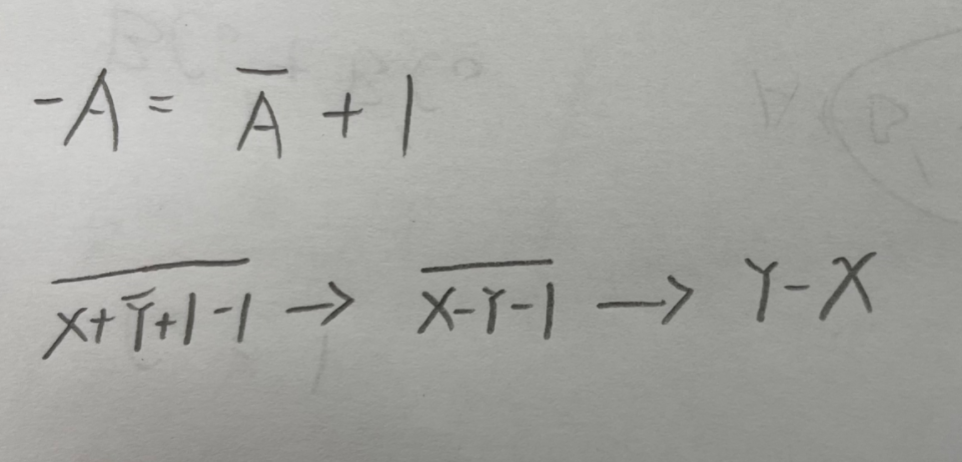 -A = A̅ + 1
X+Y̅+1-1 → X-Y-1 → Y-X